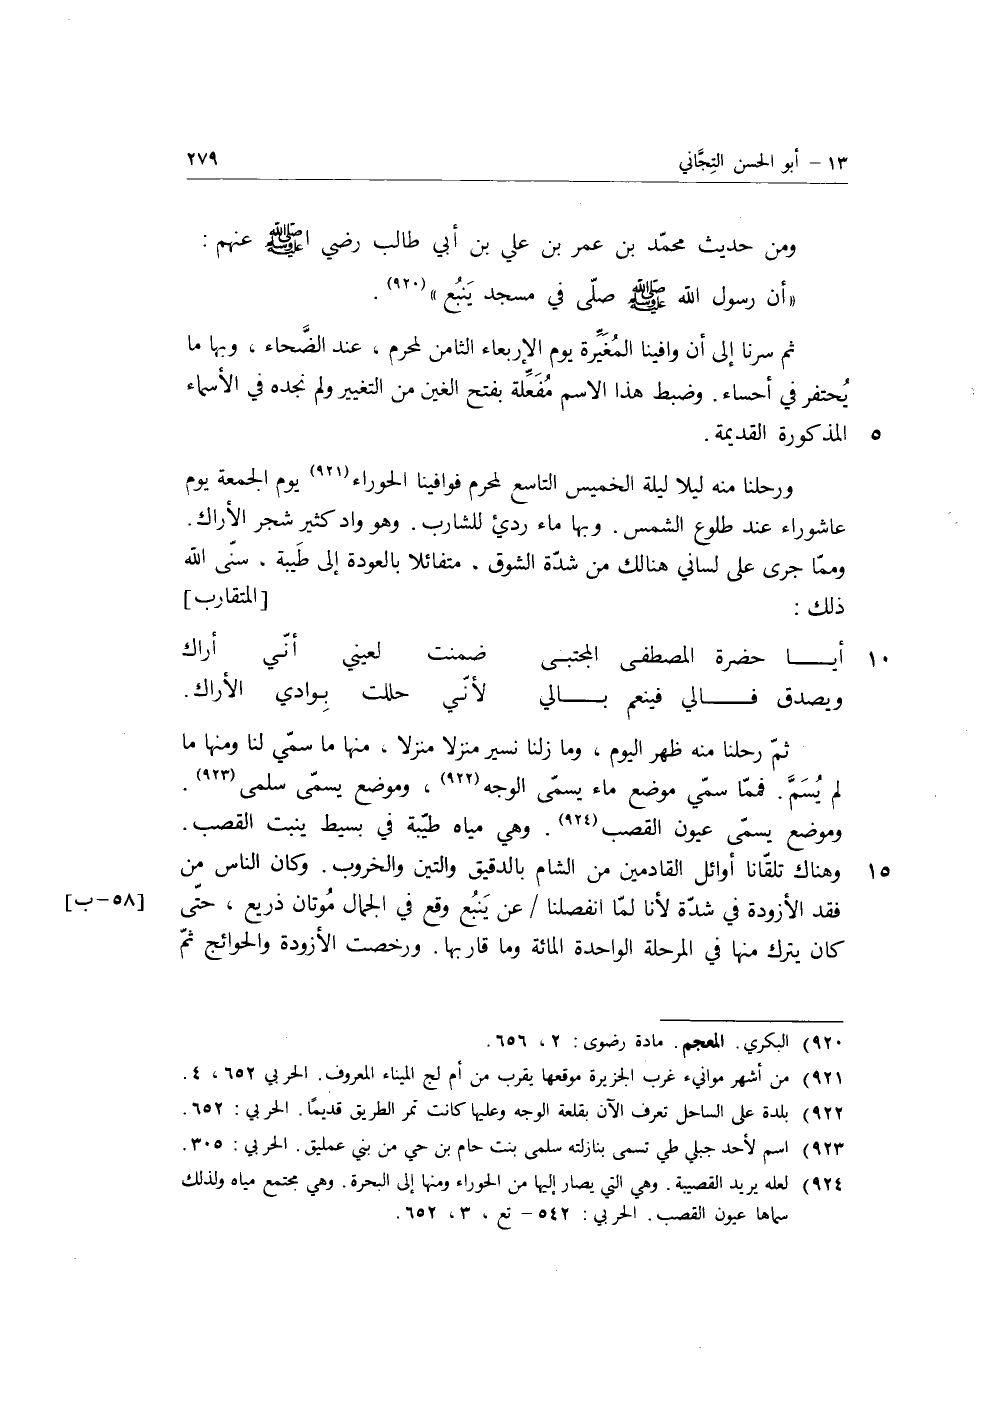 ١٣ – أبو الحسن التِجَّاني ٢٧٩
ومن حديث محمّد بن عمر بن علي بن أبي طالب رضي اﷺ عنهم :
«أن رسول الله ﷺ صلّى في مسجد يَنبُع »(٩٢٠) .
ثم سرنا إلى أن وافينا المُغَيِّرة يوم الإربعاء الثامن لمحرم ، عند الضَّحاء ، وبها ما
يُحتفر في أحساء . وضبط هذا الاسم مُفَعِّلة بفتح الغين من التغيير ولم نجده في الأسماء
٥ المذكورة القديمة .
ورحلنا منه ليلا ليلة الخميس التاسع لمحرم فوافينا الحوراء(٩٢١) يوم الجمعة يوم
عاشوراء عند طلوع الشمس . وبها ماء ردئ للشارب . وهو واد كثير شجر الأراك .
وممّا جرى على لساني هنالك من شدّة الشوق ، متفائلا بالعودة إلى طَيبة ، سنّى الله
ذلك : [المتقارب]
١٠ أيـــا حضرة المصطفى المجتبى ضمنت لعيني أنّي أراك
ويصدق فـــالي فينعم بـــالي لأنّي حللت بِوادي الأراك .
ثمّ رحلنا منه ظهر اليوم ، وما زلنا نسير منزلا منزلا ، منها ما سمّي لنا ومنها ما
لم يُسَمَّ . فممّا سمّي موضع ماء يسمّى الوجه(٩٢٢) ، وموضع يسمّى سلمى(٩٢٣) .
وموضع يسمّى عيون القصب(٩٢٤) . وهي مياه طيّبة في بسيط ينبت القصب .
١٥ وهناك تلقّانا أوائل القادمين من الشام بالدقيق والتين والخروب . وكان الناس من
فقد الأزودة في شدّة لأنا لمّا انفصلنا / عن يَنبُع وقع في الجمال مُوتان ذريع ، حتّى [٥٨–ب]
كان يترك منها في المرحلة الواحدة المائة وما قاربها . ورخصت الأزودة والحوائج ثمّ
٩٢٠) البكري . المعجم . مادة رضوى : ٢ ، ٦٥٦ .
٩٢١) من أشهر موانيء غرب الجزيرة موقعها يقرب من أم لج الميناء المعروف . الحربي ٦٥٢ ، ٤ .
٩٢٢) بلدة على الساحل تعرف الآن بقلعة الوجه وعليها كانت تمر الطريق قديمًا . الحربي : ٦٥٢ .
٩٢٣) اسم لأحد جبلي طي تسمى بنازلته سلمى بنت حام بن حي من بني عمليق . الحربي : ٣٠٥ .
٩٢٤) لعله يريد القصيبة . وهي التي يصار إليها من الحوراء ومنها إلى البحرة . وهي مجتمع مياه ولذلك
سماها عيون القصب . الحربي : ٥٤٢ – تع ، ٣ ، ٦٥٢ .